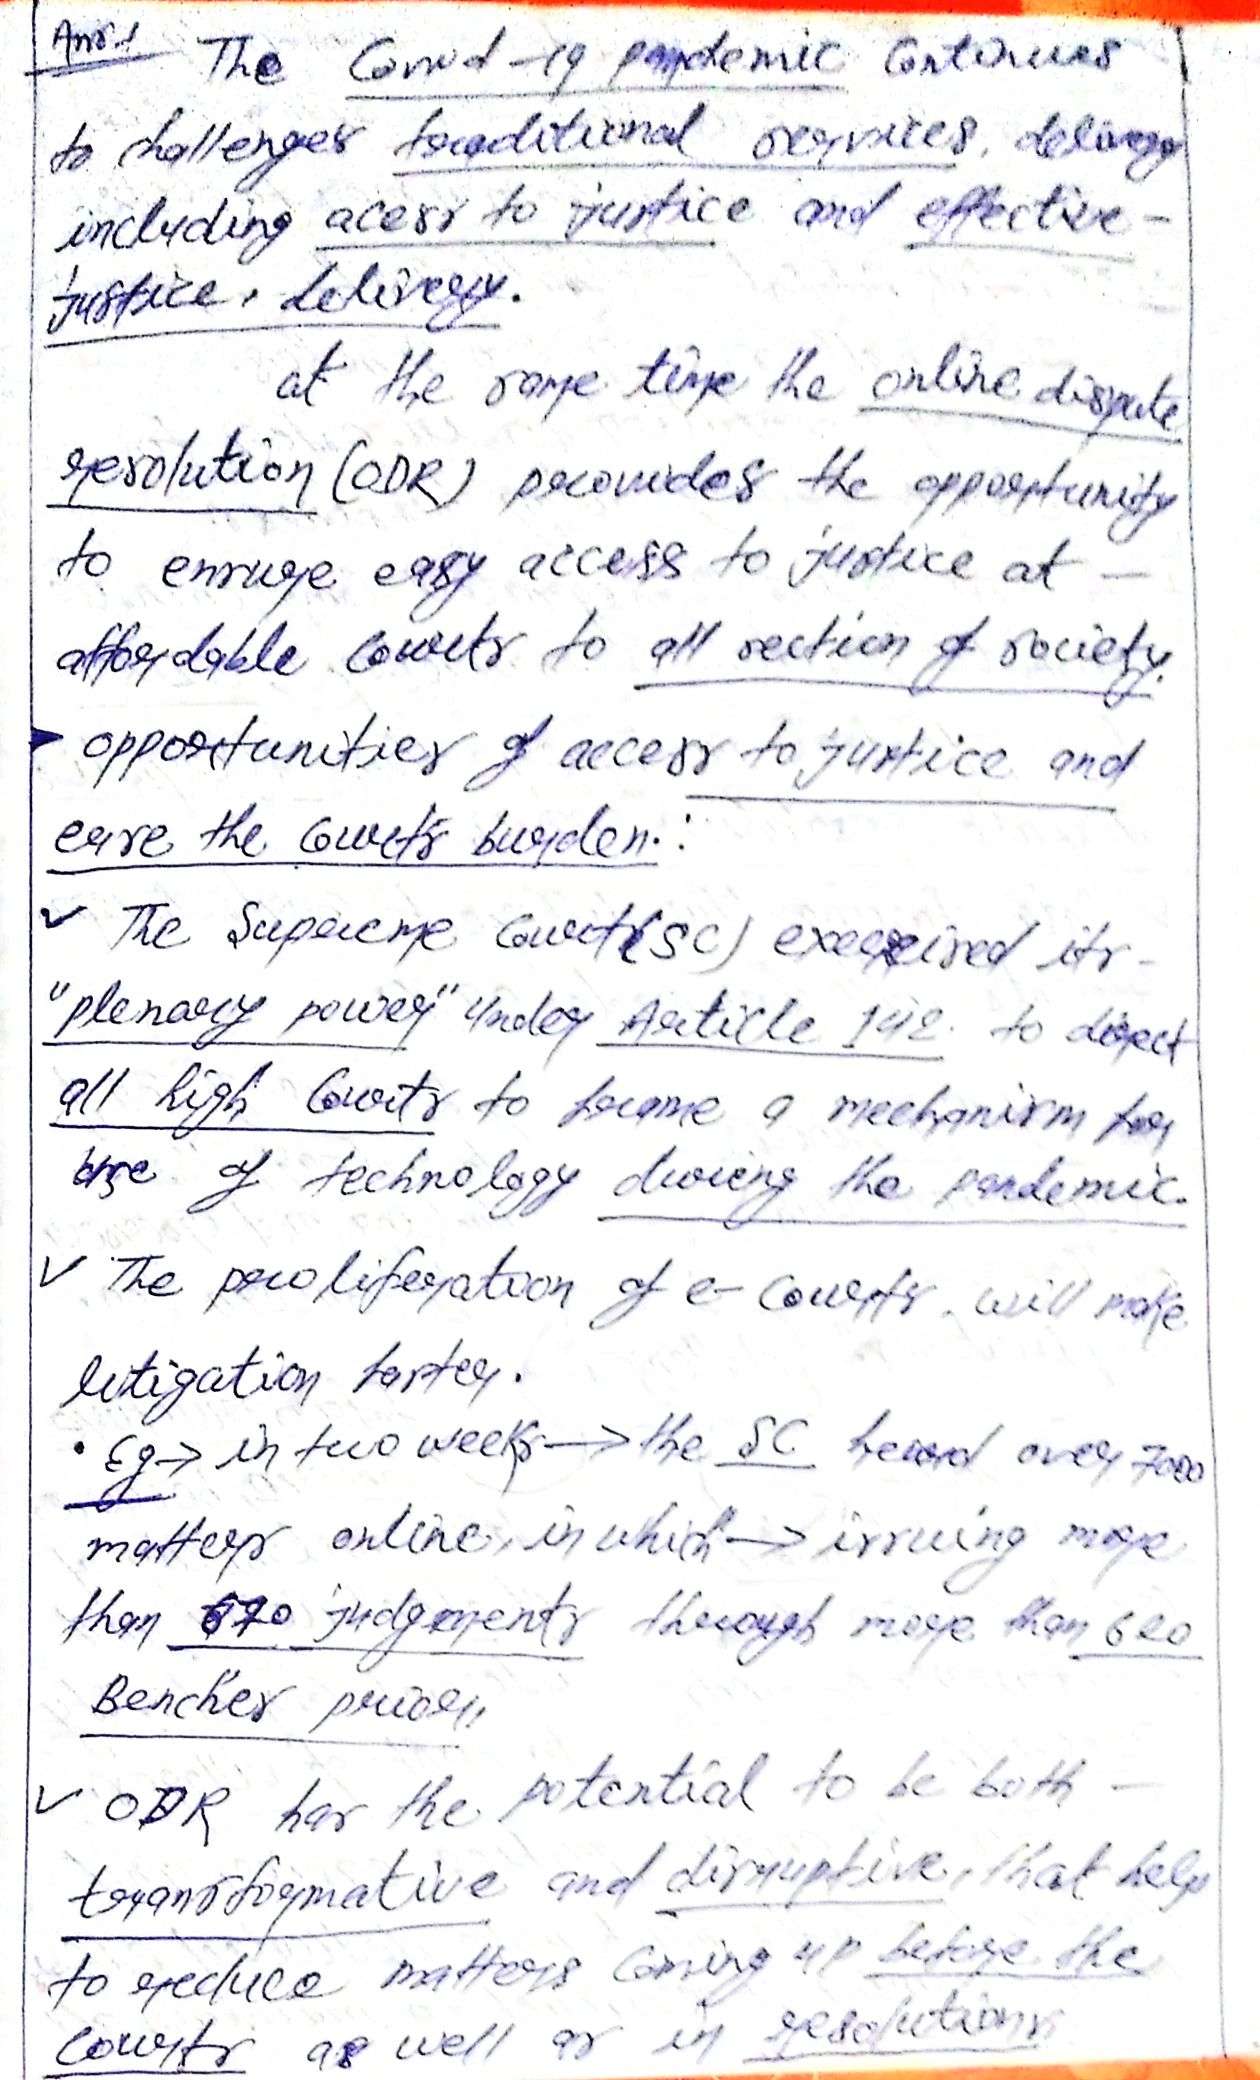 Ans 1 The Covid-19 pandemic Continues
to challenges traditional services, delivery
including acess to justice and effective-
justice, delivery.
at the same time the online dispute
resolution (ODR) provides the opportunity
to ensure easy access to justice at -
affordable Courts to all section of society.
opportunities of access to justice and
ease the Court's burden.:
✓ The Supreme Court (SC) exercised its -
"plenary power" under Article 142. to direct
all high Courts to frame a mechanism for
use of technology during the pandemic.
✓ The proliferation of e-Courts. will make
litigation faster.
• Eg → in two weeks → the SC heard over 7000
matters online, in which → issuing more
than 670 judgments through more than 620
Benches prior,
✓ ODR has the potential to be both -
transformative and disruptive, that help
to reduce matters Coming up before the
Courts as well as in resolutions